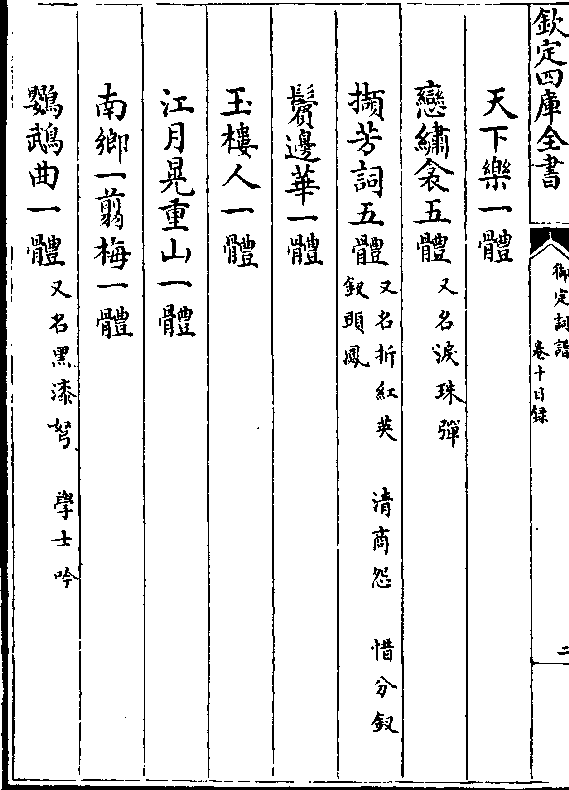 欽定四庫全書
御定詞譜
卷十目録
二
天下樂一體
戀繡衾五體
又名淚珠彈
擷芳詞五體
又名折紅英 清商怨 惜分釵
釵頭鳳
鬢邊華一體
玉樓人一體
江月晃重山一體
南鄉一翦梅一體
鸚鵡曲一體
又名黑漆弩 學士吟